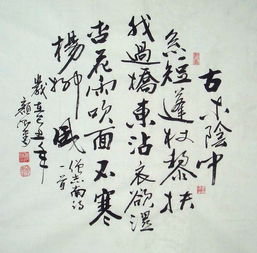 古木陰中
系短蓬杖藜扶
我過橋東沾衣欲濕
杏花雨吹面不寒
楊柳風
僧志南詩
一首